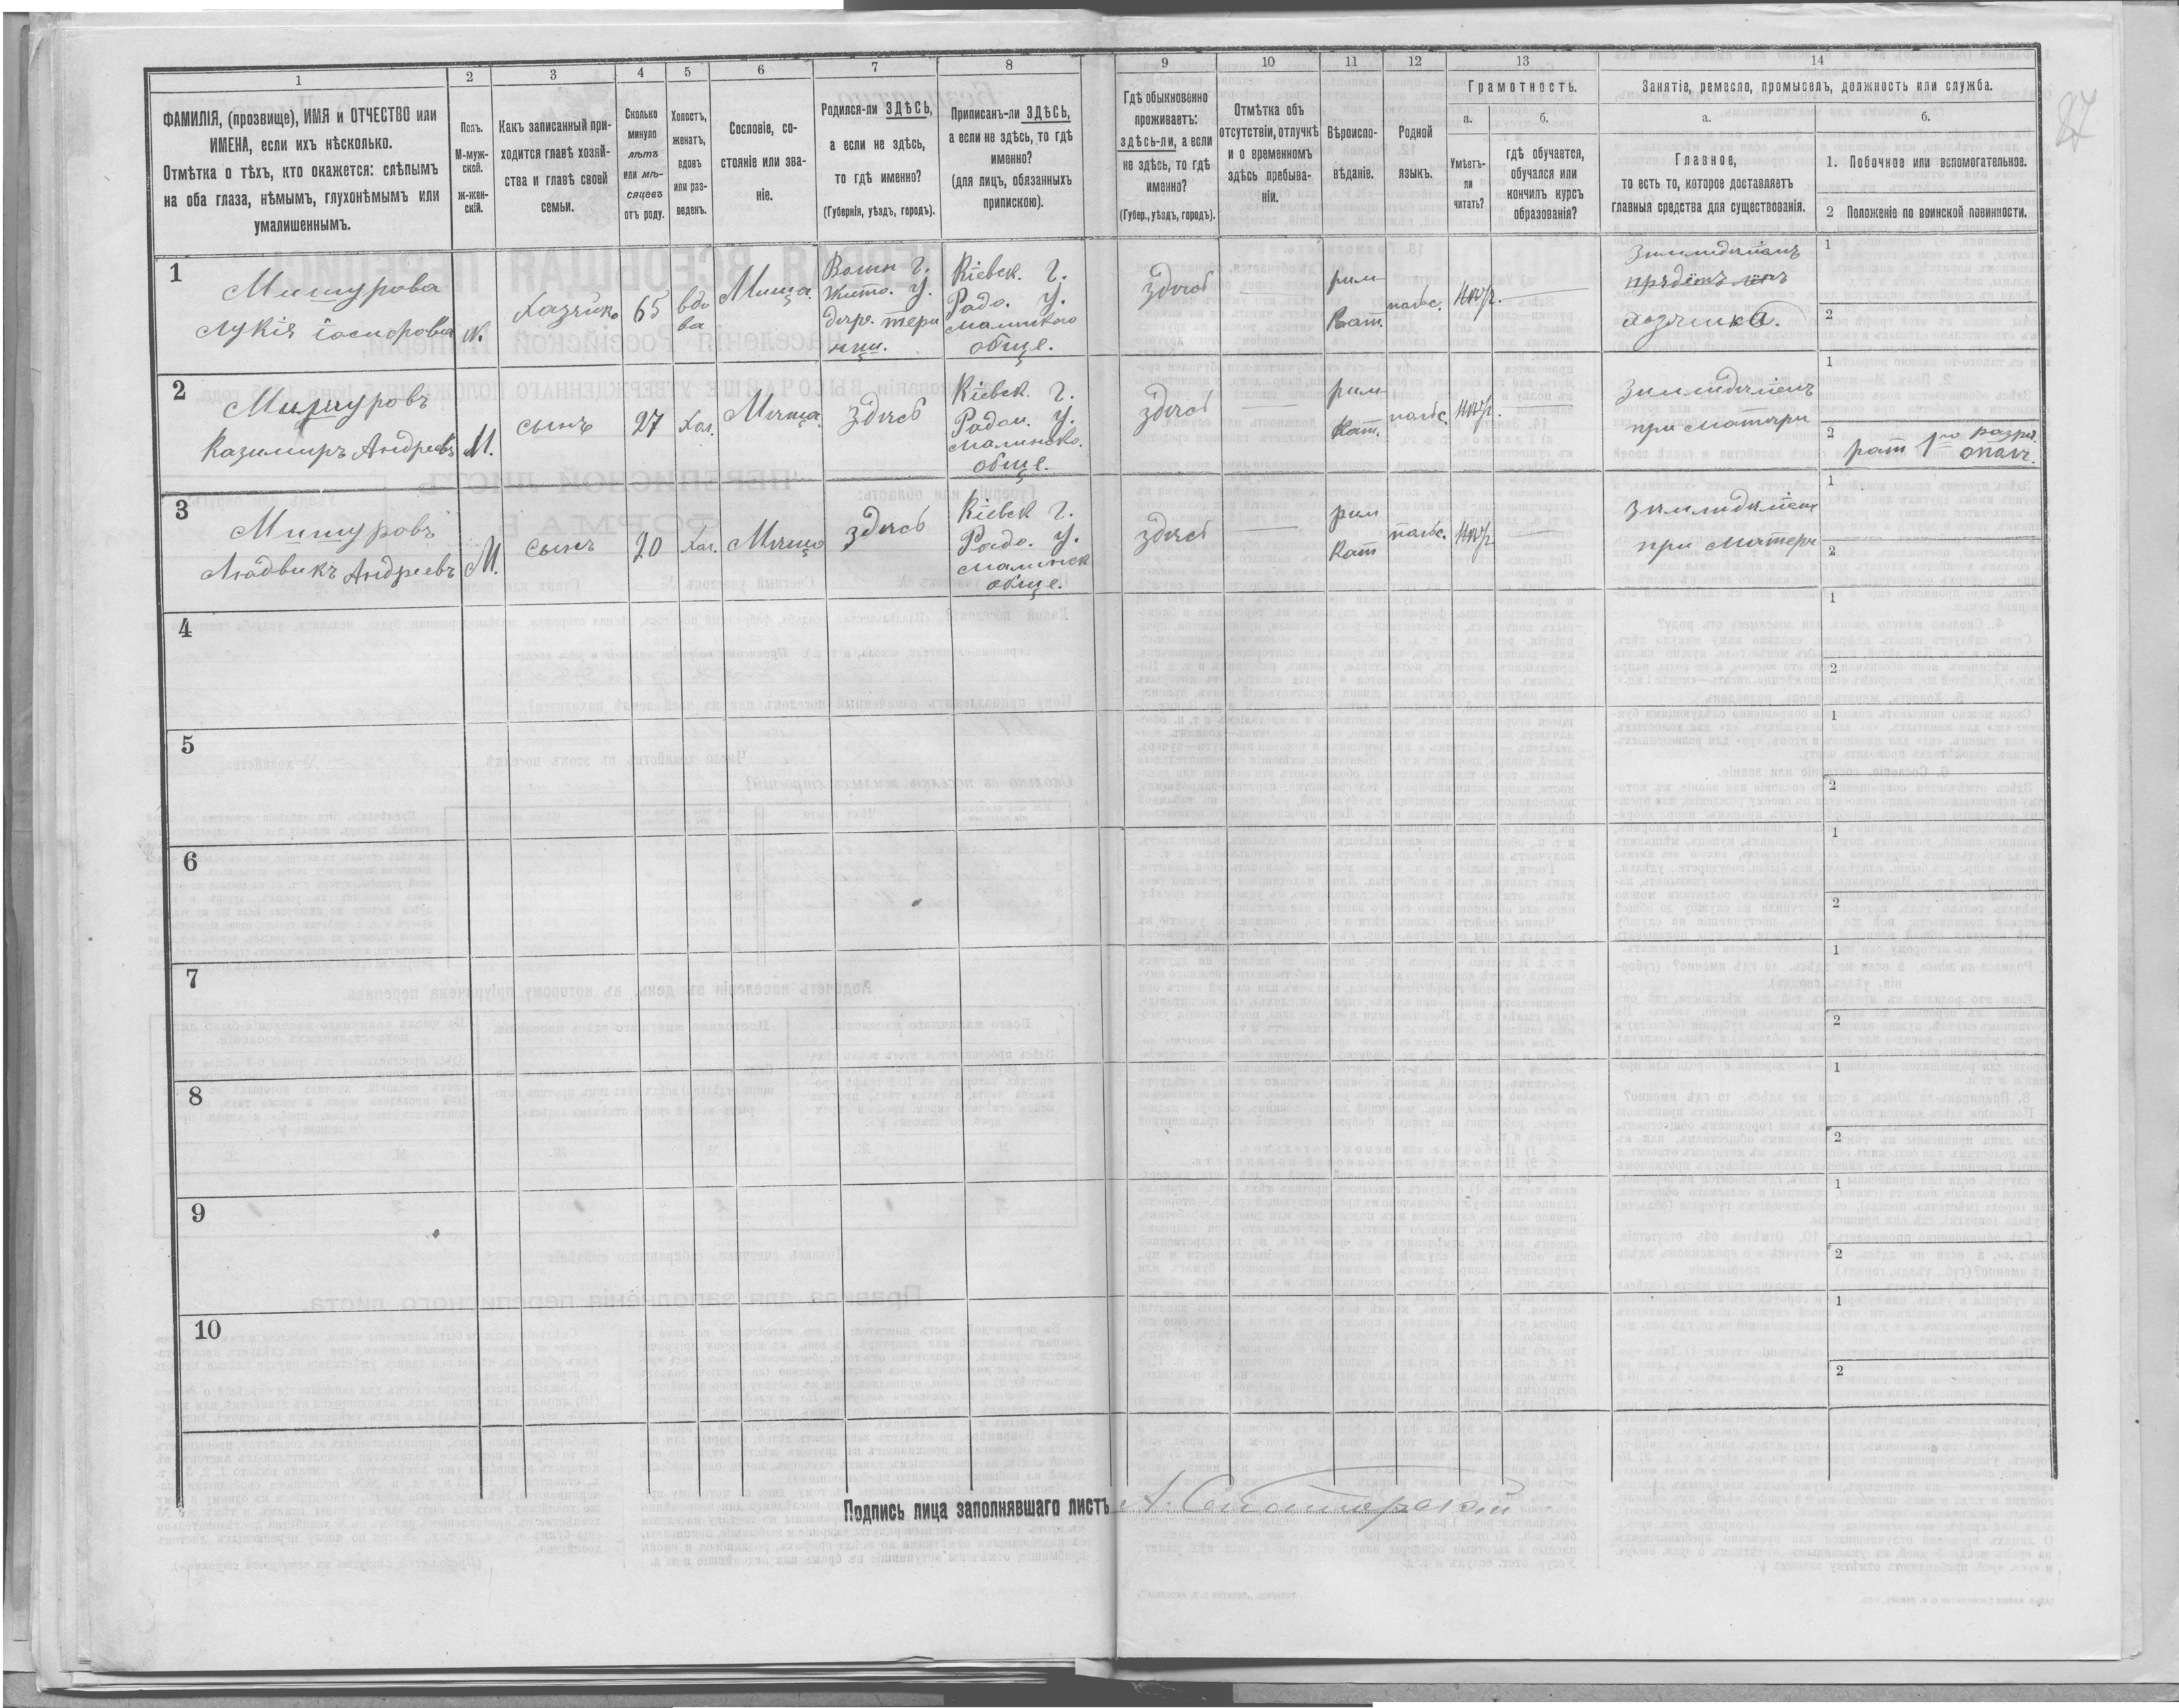 1 2 3 4 5 6 7 8 9 10 11 12 13 14
ФАМИЛІЯ, (прозвище), ИМЯ и ОТЧЕСТВО или
ИМЕНА, если ихъ нѣсколько.
Отмѣтка о тѣхъ, кто окажется: слѣпымъ
на оба глаза, нѣмымъ, глухонѣмымъ или
умалишеннымъ.
Полъ.
М-муж-
ской.
Ж-жен-
скій.
Какъ записанный при-
ходится главѣ хозяй-
ства и главѣ своей
семьи.
Сколько
минуло
лѣтъ
или мѣ-
сяцевъ
отъ роду.
Холостъ,
женатъ,
вдовъ
или раз-
веденъ.
Сословіе, со-
стояніе или зва-
ніе.
Родился-ли ЗДѢСЬ,
а если не здѣсь,
то гдѣ именно?
(Губернія, уѣздъ, городъ).
Приписанъ-ли ЗДѢСЬ,
а если не здѣсь, то гдѣ
именно?
(для лицъ, обязанныхъ
припискою).
Гдѣ обыкновенно
проживаетъ:
здѣсь-ли, а если
не здѣсь, то гдѣ
именно?
(Губер., уѣздъ, городъ).
Отмѣтка объ
отсутствіи, отлучкѣ
и о временномъ
здѣсь пребыва-
ніи.
Вѣроиспо-
вѣданіе.
Родной
языкъ.
Грамотность.
а.
Умѣетъ-
ли
читать?
б.
гдѣ обучается,
обучался или
кончилъ курсъ
образованія?
Занятіе, ремесло, промыселъ, должность или служба.
а.
Главное,
то есть то, которое доставляетъ
главныя средства для существованія.
б.
1. Побочное или вспомогательное.
2 Положеніе по воинской повинности.
87
1
Мишурова
Лукія Іосифова
Ж.
Хазяйко
65
вдо
ва
Мѣща.
Волин г.
Жито. У.
дере.
Кіевск. г.
Радо. У.
Малинского
обще.
здѣсь
рим
Кат.
польс.
Негр.
Зимледѣліемъ
хозяика.
1
2
2
Мишуровъ
Казимиръ Андреевъ
М.
сынъ
27
Хол.
Мѣща.
здѣсь
Кіевск. г.
Радом. У.
Малинско.
обще.
здѣсь
рим
Кат.
польс.
Негр.
Зимледѣліемъ
при Матери
1
2
рат 1го разр.
опол.
3
Мишуровъ
Людвикъ Андреевъ
М.
сынъ
20
Хол.
Мѣща
здѣсь
Кіевск г.
Радо. У.
Малинск
обще.
здѣсь
рим
Кат
польс.
Негр
Зимледѣліем
при Матери
1
2
4
1
2
5
1
2
6
1
2
7
1
2
8
1
2
9
1
2
10
1
2
Подпись лица заполнявшаго листъ